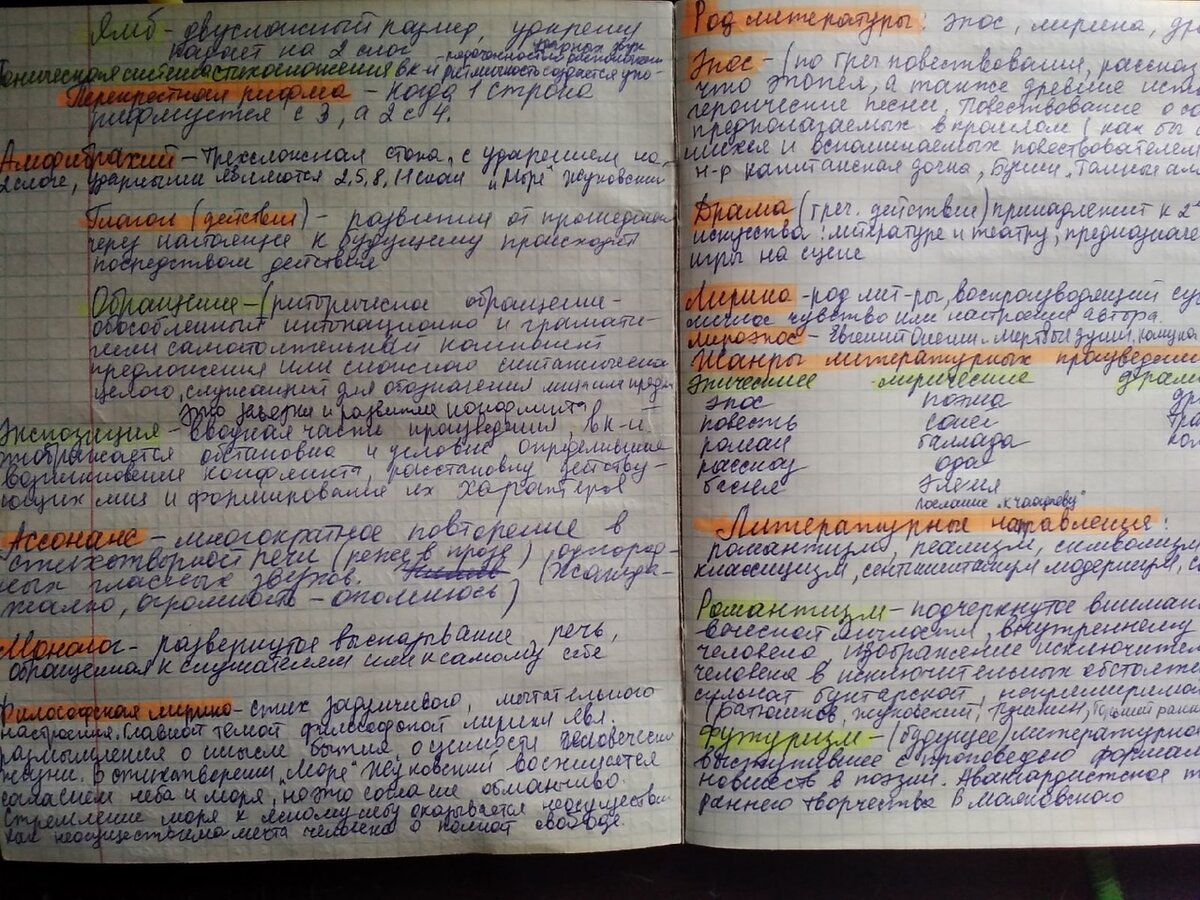 Ямб - двусложный размер, ударение
падает на 2 слог
Тоническая система стихосложения в к-й ритмичность создаётся упо-
- рядоченностью расположения
ударных звук
Перекрестная рифма - когда 1 строка
рифмуется с 3, а 2 с 4.
Амфибрахий - трехсложная стопа, с ударением на
2 слоге, ударными являются 2, 5, 8, 11 слоги "Море" Жуковский
Глагол (действия) - развития от прошедшего
через настоящее к будущему происходит
посредством действия
Обращение - (риторическое обращение -
обособленный интонационно и грамати-
чески самостоятельный компонент
предложения или сложного синтаксическо
целого, служащий для обозначения
это завязки и развития конфликта
Экспозиция - вводная часть произведения, в к-й
изображается обстановка и условия определившие
возникновение конфликта, расстановку действу-
ющих лиц и формирования их характеров
Ассонанс - многократное повторение в
стихотворной речи (реже в прозе) однород-
ных гласных звуков.
жалко, огромность -
Монолог - развернутое высказывание, речь,
обращенная к слушателем или к самому себе
Философская лирика - стих задумчивого, мечтательного
настроения. Главной темой философской лирики явл.
размышления о смысле бытия, о ценности человеческой
жизни. В стихотворении "Море" Жуковский восхищается
согласием неба и моря, но это согласие обманчиво.
Стремление моря к ясному небу оказывается неосуществи
как неосуществима мечта человека о полной свободе.
Род литературы: эпос, лирика, др
Эпос - (по греч повествования, рассказ
что эпопея, а также древние исто
героические песни. Повествование о со
предполагаемых в прошлом (как бы
шихся и вспоминаемых повествователем
н-р капитанская дочка, Бунин "Темные ал
Драма (греч. действия) принадлежит к 2
искусства: литературе и театру, предназначе
игры на сцене
Лирика - род лит-ры, воспроизводящий су
личное чувство или настроения автора.
Лироэпос - Евгений Онегин. Мертвые души,
Жанры литературных произведени
Эпические лирические драм
эпос поэма др
повесть сонет тра
роман баллада ко
рассказ ода
басня элегия
послание "к Чаадаеву"
Литературные направления:
романтизм, реализм, символизм
классицизм, сентиментализм модернизм, с
Романтизм - подчеркнутое внимани
личности, внутреннему
человека, изображение исключител
человека в исключительных обстояте
бунтарской, непримирима
(Батюшков, Жуковский, Пушкин,
Футуризм - (будущее) литературно
выступившее с проповедью формаль
новшеств в поэзии. Авангардистское т
раннего творчества В Маяковского